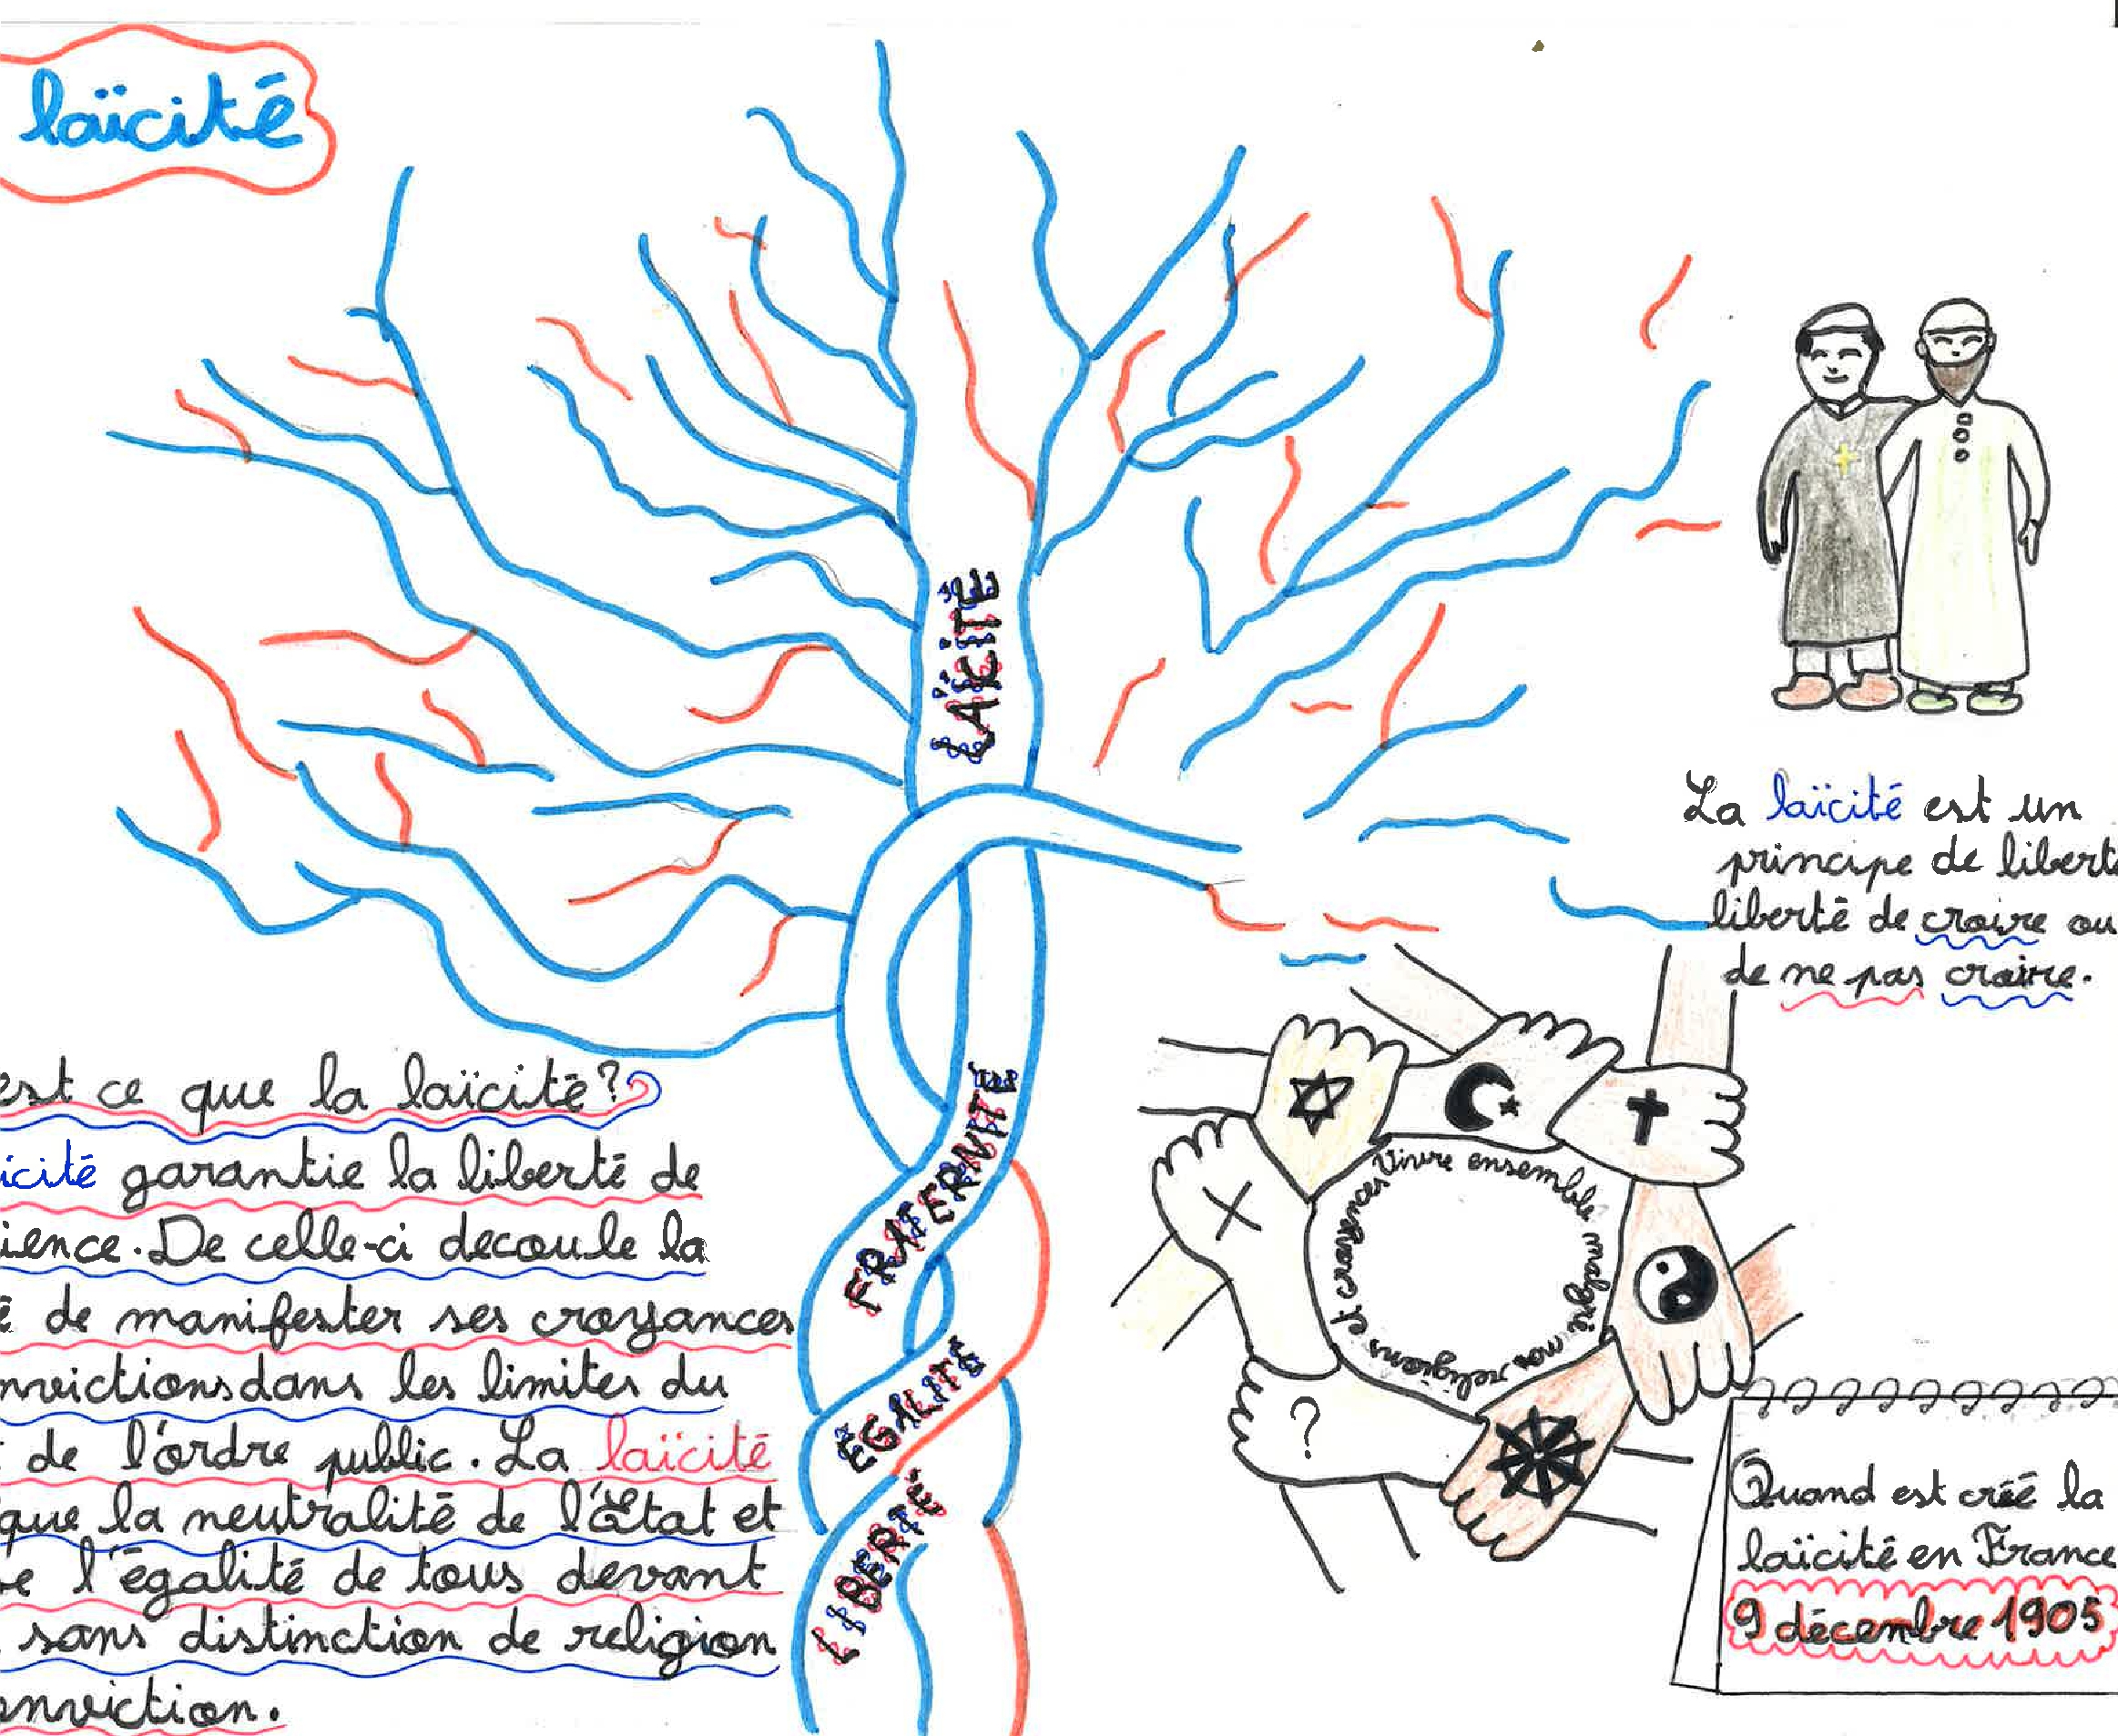 laïcité
LAÏCITÉ
FRATERNITÉ
ÉGALITÉ
LIBERTÉ
La laïcité est un
principe de liberté
liberté de croire ou
de ne pas croire.
est ce que la laïcité?
icité garantie la liberté de
ience. De celle-ci decoule la
é de manifester ses croyances
nvictions dans les limites du
de l'ordre public. La laïcité
que la neutralité de l'État et
e l'égalité de tous devant
sans distinction de religion
onviction.
Vivre ensemble malgré nos religions et
?
Quand est créé la
laïcité en France
9 décembre 1905